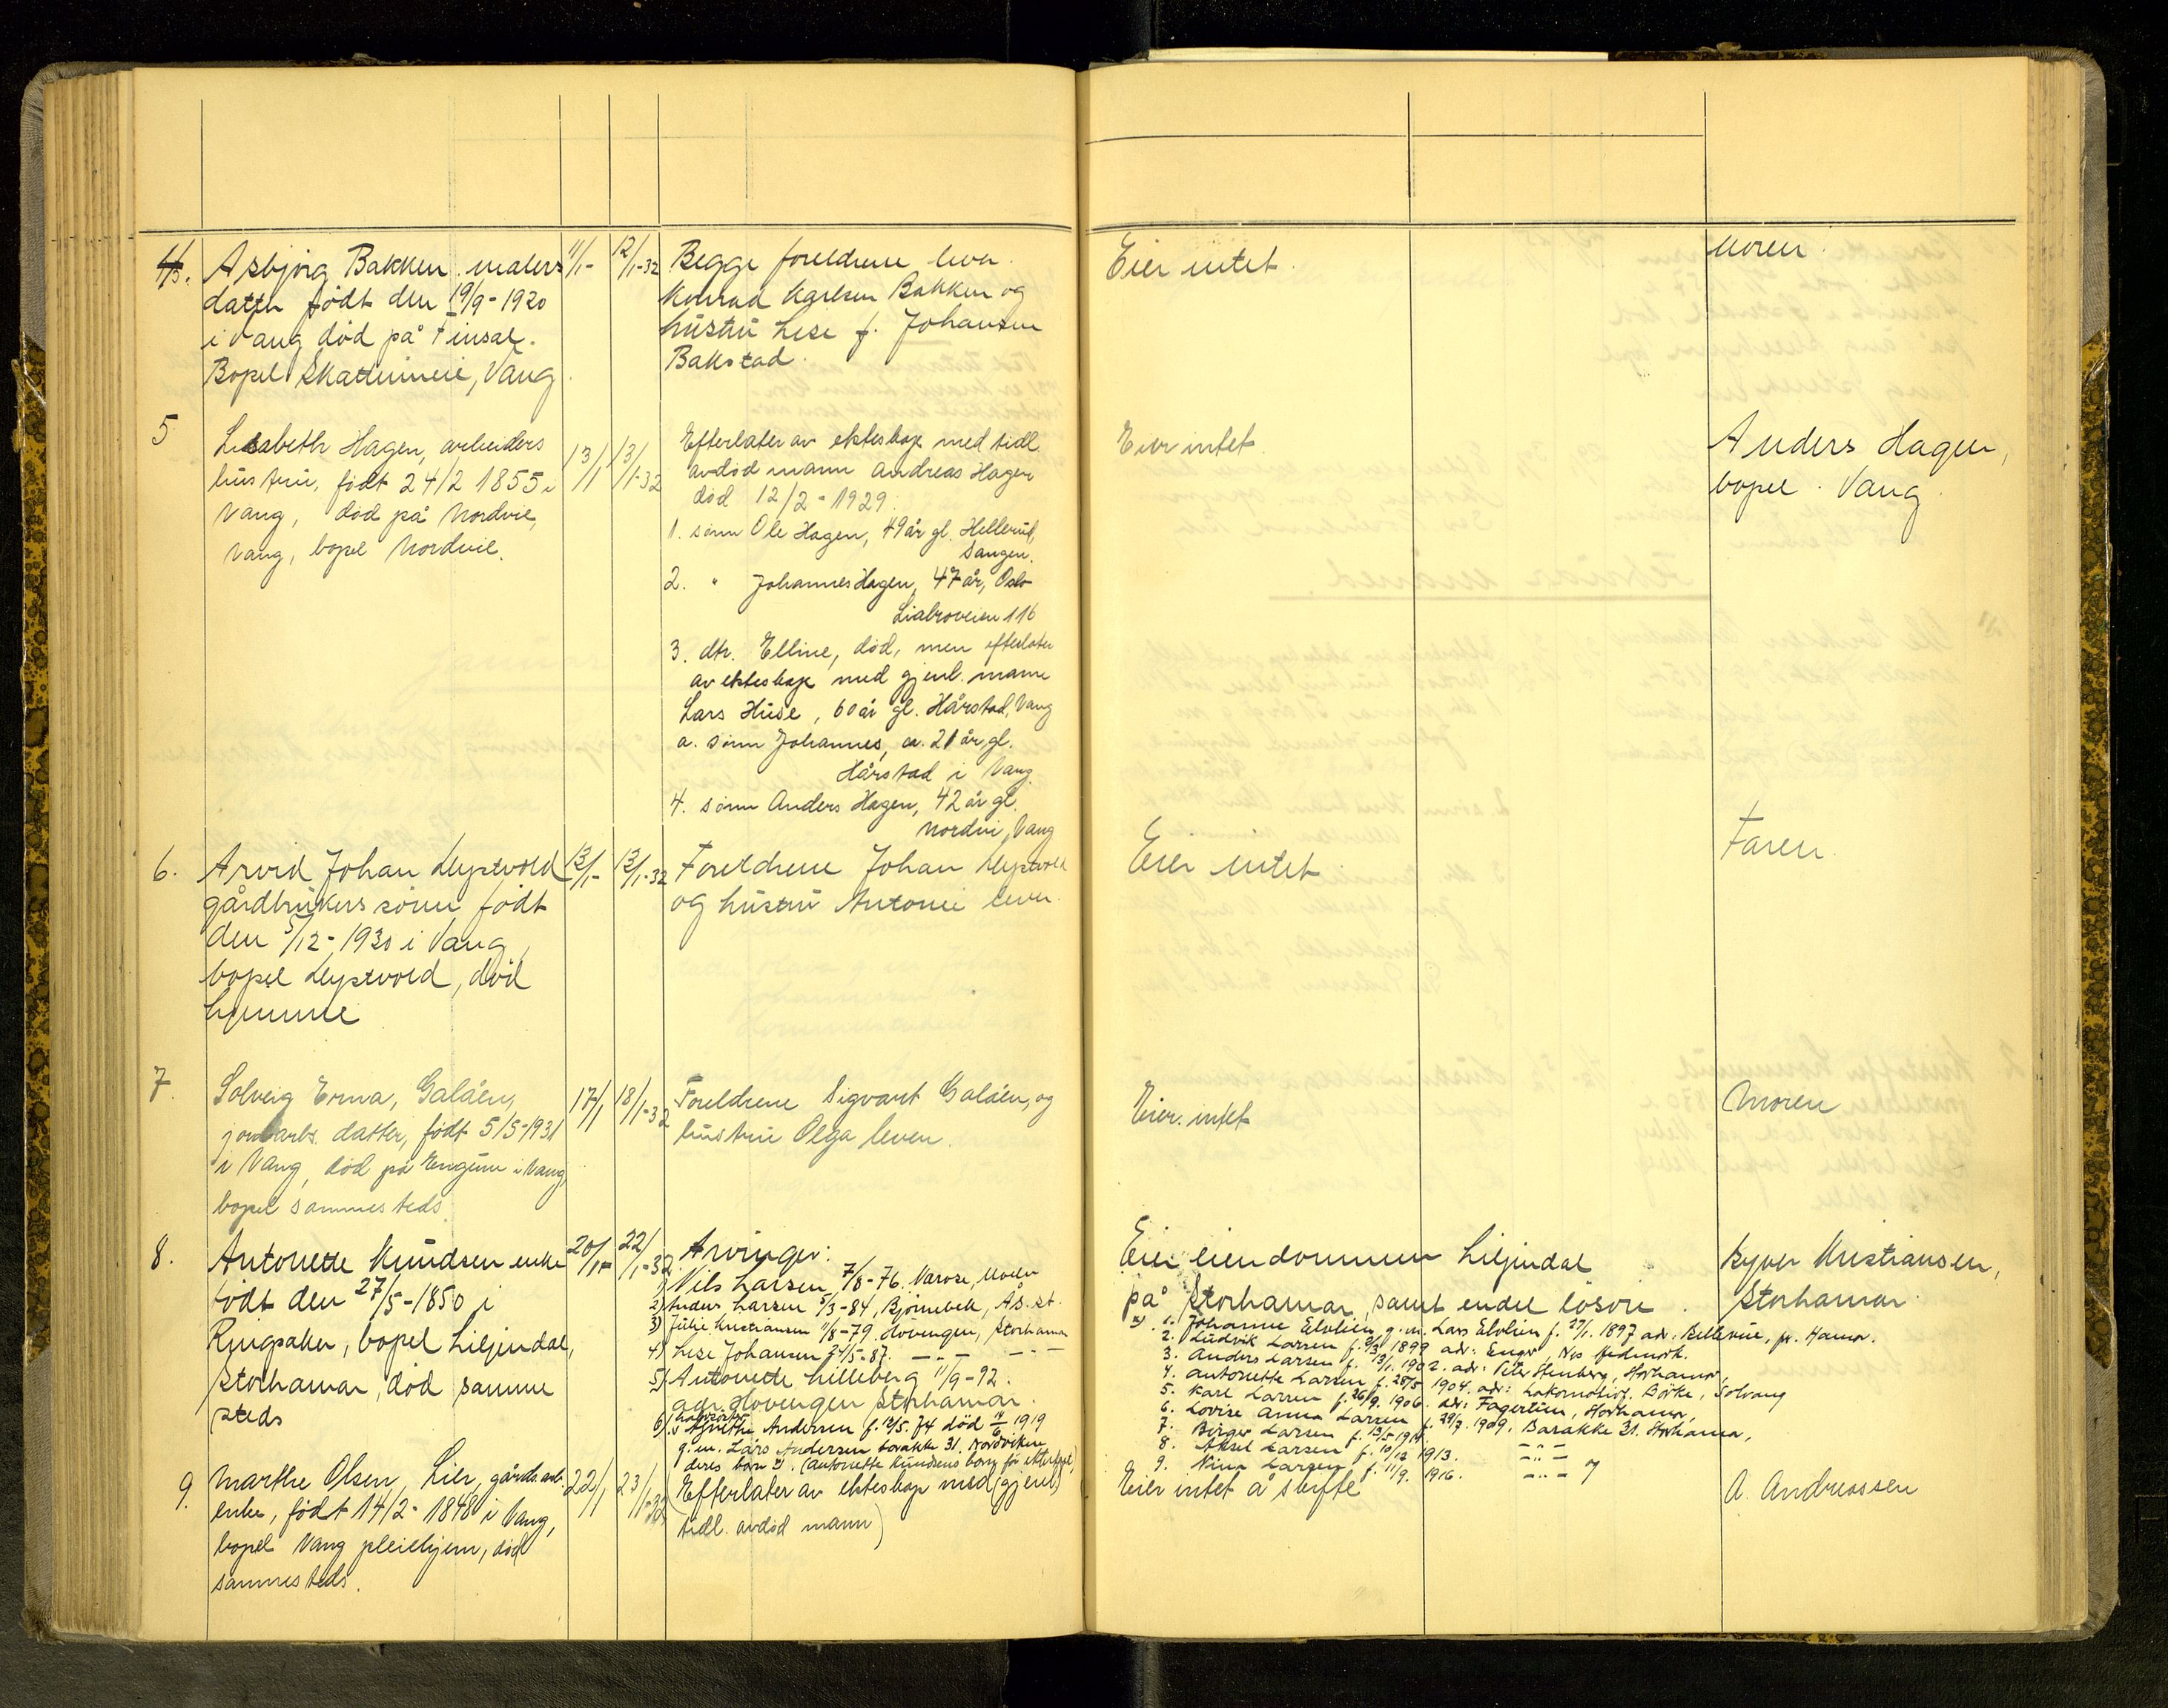 4.
Asbjørg Bakken malers
datter født den 19/9-1920
i Vang død på Finsal.
Bopel Skattumeie, Vang
11/1-
12/1-32
Begge foreldrene lever.
Konrad Karlsen Bakken og
hustru Lise f. Johansen
Bakstad.
Eier intet.
Moren
5
Lisabeth Hagen, arbeiders
hustru, født 24/2 1855 i
Vang, død på Nordvie,
Vang, bopel Nordvie.
13/1
13/1-32
Efterlater av ekteskap med tidl.
avdød mann Andreas Hagen
død 12/2-1929.
1. sønn Ole Hagen, 49 år gl. Hellerud,
Sangen.
2. " Johannes Hagen, 47 år, Oslo
Liabroveien 116
3. dtr. Elline, død, men efterlater
av ekteskap med gjenl. mann
Lars Huse, 60 år gl. Hårstad, Vang
a. sønn Johannes, ca. 21 år gl.
Hårstad i Vang.
4. sønn Anders Hagen, 42 år gl.
Nordvi, Vang
Eier intet.
Anders Hagen,
bopel Vang.
6.
Arvid Johan Lystvold
gårdbrukers sønn født
den 5/12-1930 i Vang,
bopel Lystvold, død
hjemme
13/1-
13/1-32
Foreldrene Johan Lystvold
og hustru Antonie lever.
Eier intet
Faren.
7.
Solveig Erna, Galåen,
jordarb. datter, født 5/5-1931
i Vang, død på Engum i Vang,
bopel sammesteds
17/1
18/1-32
Foreldrene Sigvart Galåen, og
hustru Olga lever.
Eier intet
Moren
8.
Antonette Knudsen enke
født den 27/5-1850 i
Ringsaker, bopel Liljendal,
Storhamar, død samme
steds
20/1-
22/1-32
Arvinger:
1) Nils Larsen, 7/8-76. Varose, Moelv
2) Anders Larsen 5/3-84, Bjørnebek, Ås. st.
3) Julie Kristiansen 11/8-79. Hovengen, Storhamar
4) Lise Johansen 24/5-87. -"- -"-
5) Antonette Lilleberg 11/9-92.
adr. Hovengen Storhamar.
6) Agnethe Andersen f. 12/5. 74 død 14/6 1919
g.m. Lars Andersen barakke 31. Nordviken
deres barn x). (Antonette Knudsens barn før ekteskapet)
Eier eiendommen Liljendal
på Storhamar, samt endel løsøre.
x) 1. Johanne Elvlien g.m. Lars Elvlien f. 27/1. 1897 adr. Bellevue, pr. Hamar.
2. Ludvik Larsen f. 9/3 1899 adr: Enger, Nes Hedmark.
3. Anders Larsen f. 13/1. 1902. adr: Peter Stenberg, Storhamar,
4. Antonette Larsen f. 28/5 1904. adr: Lokomotivf. Börke, Solvang
5. Karl Larsen f. 26/9. 1906. adr: Fagertun, Storhamar,
6. Lovise Anna Larsen f. 29/7. 1909. Barakke 31. Storhamar,
7. Birger Larsen f. 13/5 1911. -"-
8. Aksel Larsen f. 10/12 1913. -"-
9. Nina Larsen f. 11/9. 1916. -"-
Kristiansen,
Storhamar.
9.
Marthe Olsen Lier, gårds. arb.
enke, født 14/2-1848 i Vang,
bopel Vang pleiehjem, død
sammesteds.
22/1
23/1-32
Efterlater av ekteskap med (gjenl.)
(tidl. avdød mann)
Eier intet å skifte
A. Andreassen